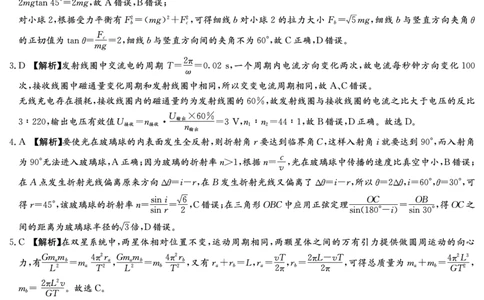 2mgtan 45°=2mg,故 A 错误,B 错误;
对小球 2,根据受力平衡有 F_b²=(mg)²+F_c²,可得细线 b 对小球 2 的拉力大小 F_b=√5mg,细线 b 与竖直方向夹角 θ
的正切值为 tan θ=F_c/mg=2,细线 b 与竖直方向间的夹角不为 60°,故 C 正确,D 错误。
3. D 【解析】发射线圈中交流电的周期 T=2π/ω=0.02 s,一个周期内电流方向变化两次,故电流每秒钟方向变化 100
次,接收线圈中磁通量变化周期和发射线圈中相同,所以交变电流周期相同,故 A、C 错误。
无线充电存在损耗,接收线圈内的磁通量约为发射线圈的 60%,故发射线圈与接收线圈的电流之比大于电压的反比
3∶220,输出电压有效值 U接收=n接收·U输出×60%/n输出=3 V,n₁∶n₂=44∶1,故 B 错误,D 正确。故选 D。
4. A 【解析】要使光在玻璃球的内表面发生全反射,则折射角 r 要达到临界角 C,这样入射角 i 就要达到 90°,而入射角
为 90°无法进入玻璃球,A 正确;因为玻璃的折射率 n>1,根据 n=c/v,光在玻璃球中传播的速度比真空中小,B 错误;
在 A 点发生折射光线偏离原来方向 Δθ=i−r,在 B 发生折射光线又偏离了 Δθ=i−r,所以 θ=2Δθ,i=60°,θ=30°,可
得 r=45°,该玻璃的折射率 n=sin i/sin r=√6/2,C 错误;在三角形 OBC 中应用正弦定理 OC/sin(180°−i)=OB/sin 30°,得 OC 之
间的距离为玻璃球半径的√3倍,D 错误。
5. C 【解析】在双星系统中,两星体相对位置不变,运动周期相同,两颗星体之间的万有引力提供做圆运动的向心
力,有 Gmₐm_b/L²=mₐ4π²rₐ/T²,Gmₐm_b/L²=m_b4π²r_b/T²,又有 rₐ+r_b=L,rₐ=vT/2π,r_b=2πL−vT/2π,可得总质量为 mₐ+m_b=4π²L³/GT²,
m_b=2πL²v/GT。故选 C。